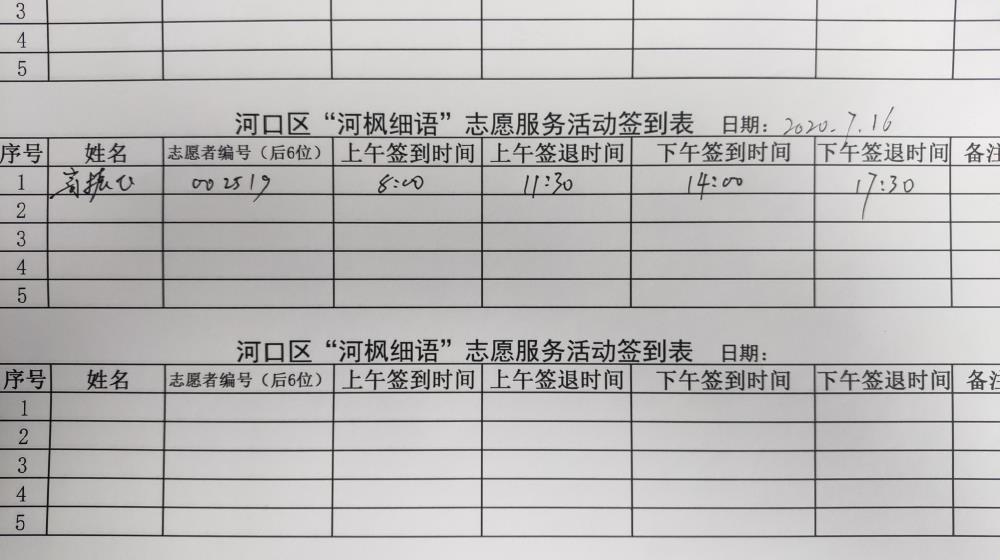 3
4
5
河口区“河枫细语”志愿服务活动签到表 日期：2020.7.16
序号 姓名 志愿者编号（后6位） 上午签到时间 上午签退时间 下午签到时间 下午签退时间 备注
1 高振飞 002519 8:00 11:30 14:00 17:30
2
3
4
5
河口区“河枫细语”志愿服务活动签到表 日期：
序号 姓名 志愿者编号（后6位） 上午签到时间 上午签退时间 下午签到时间 下午签退时间 备注
1
2
3
4
5